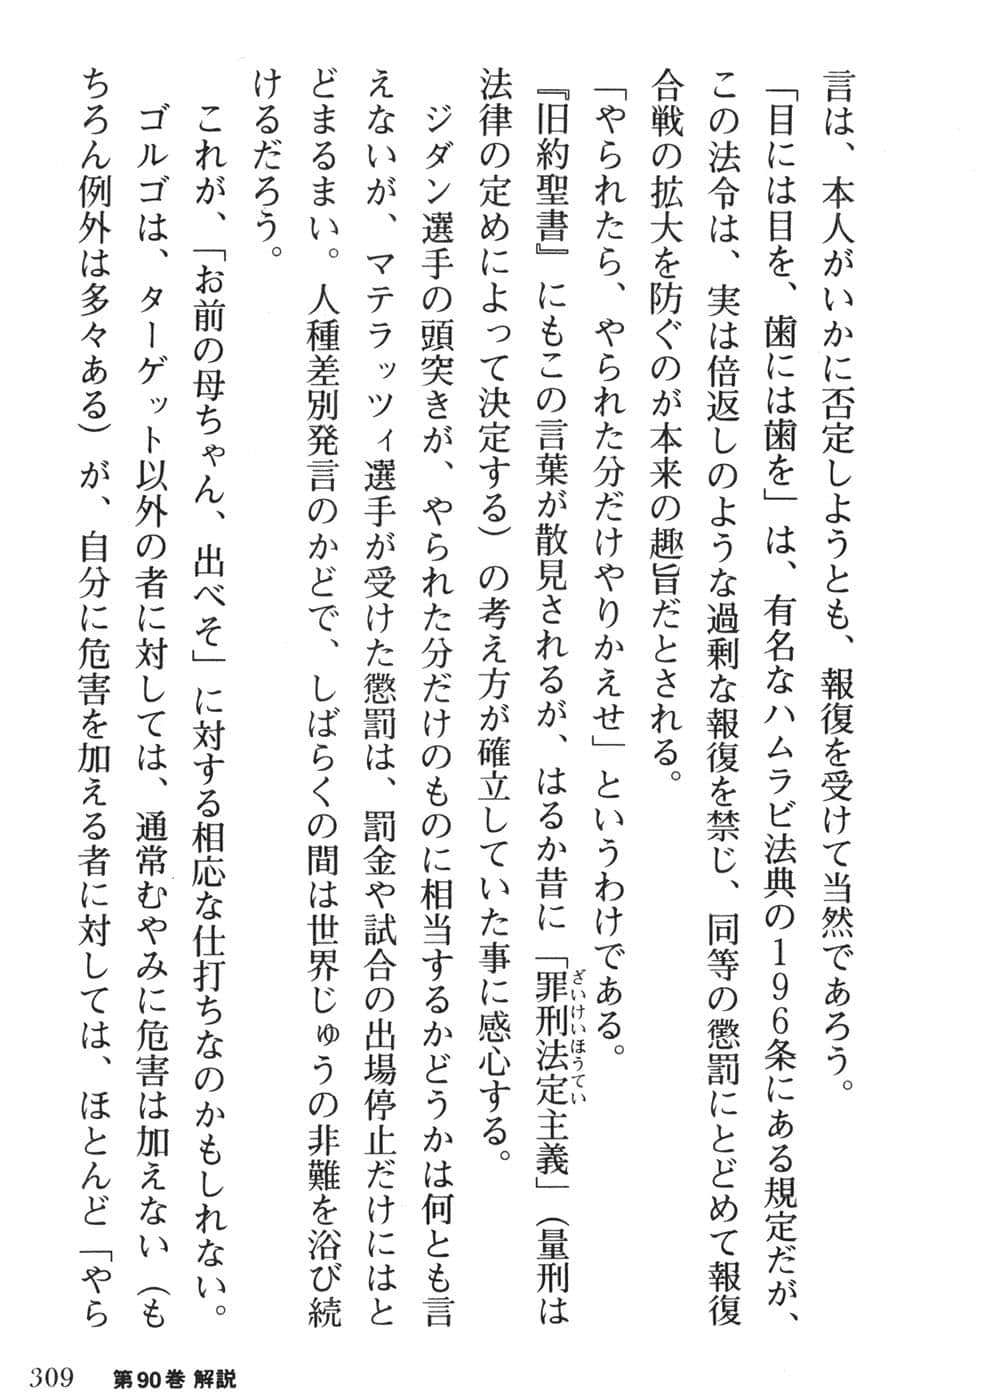 言は、本人がいかに否定しようとも、報復を受けて当然であろう。
「目には目を、歯には歯を」は、有名なハムラビ法典の196条にある規定だが、
この法令は、実は倍返しのような過剰な報復を禁じ、同等の懲罰にとどめて報復
合戦の拡大を防ぐのが本来の趣旨だとされる。
「やられたら、やられた分だけやりかえせ」というわけである。
『旧約聖書』にもこの言葉が散見されるが、はるか昔に「罪刑法定主義」（量刑は
ざいけいほうてい
法律の定めによって決定する）の考え方が確立していた事に感心する。
ジダン選手の頭突きが、やられた分だけのものに相当するかどうかは何とも言
えないが、マテラッツィ選手が受けた懲罰は、罰金や試合の出場停止だけにはと
どまるまい。人種差別発言のかどで、しばらくの間は世界じゅうの非難を浴び続
けるだろう。
これが、「お前の母ちゃん、出べそ」に対する相応な仕打ちなのかもしれない。
ゴルゴは、ターゲット以外の者に対しては、通常むやみに危害は加えない（も
ちろん例外は多々ある）が、自分に危害を加える者に対しては、ほとんど「やら
309 第90巻 解説